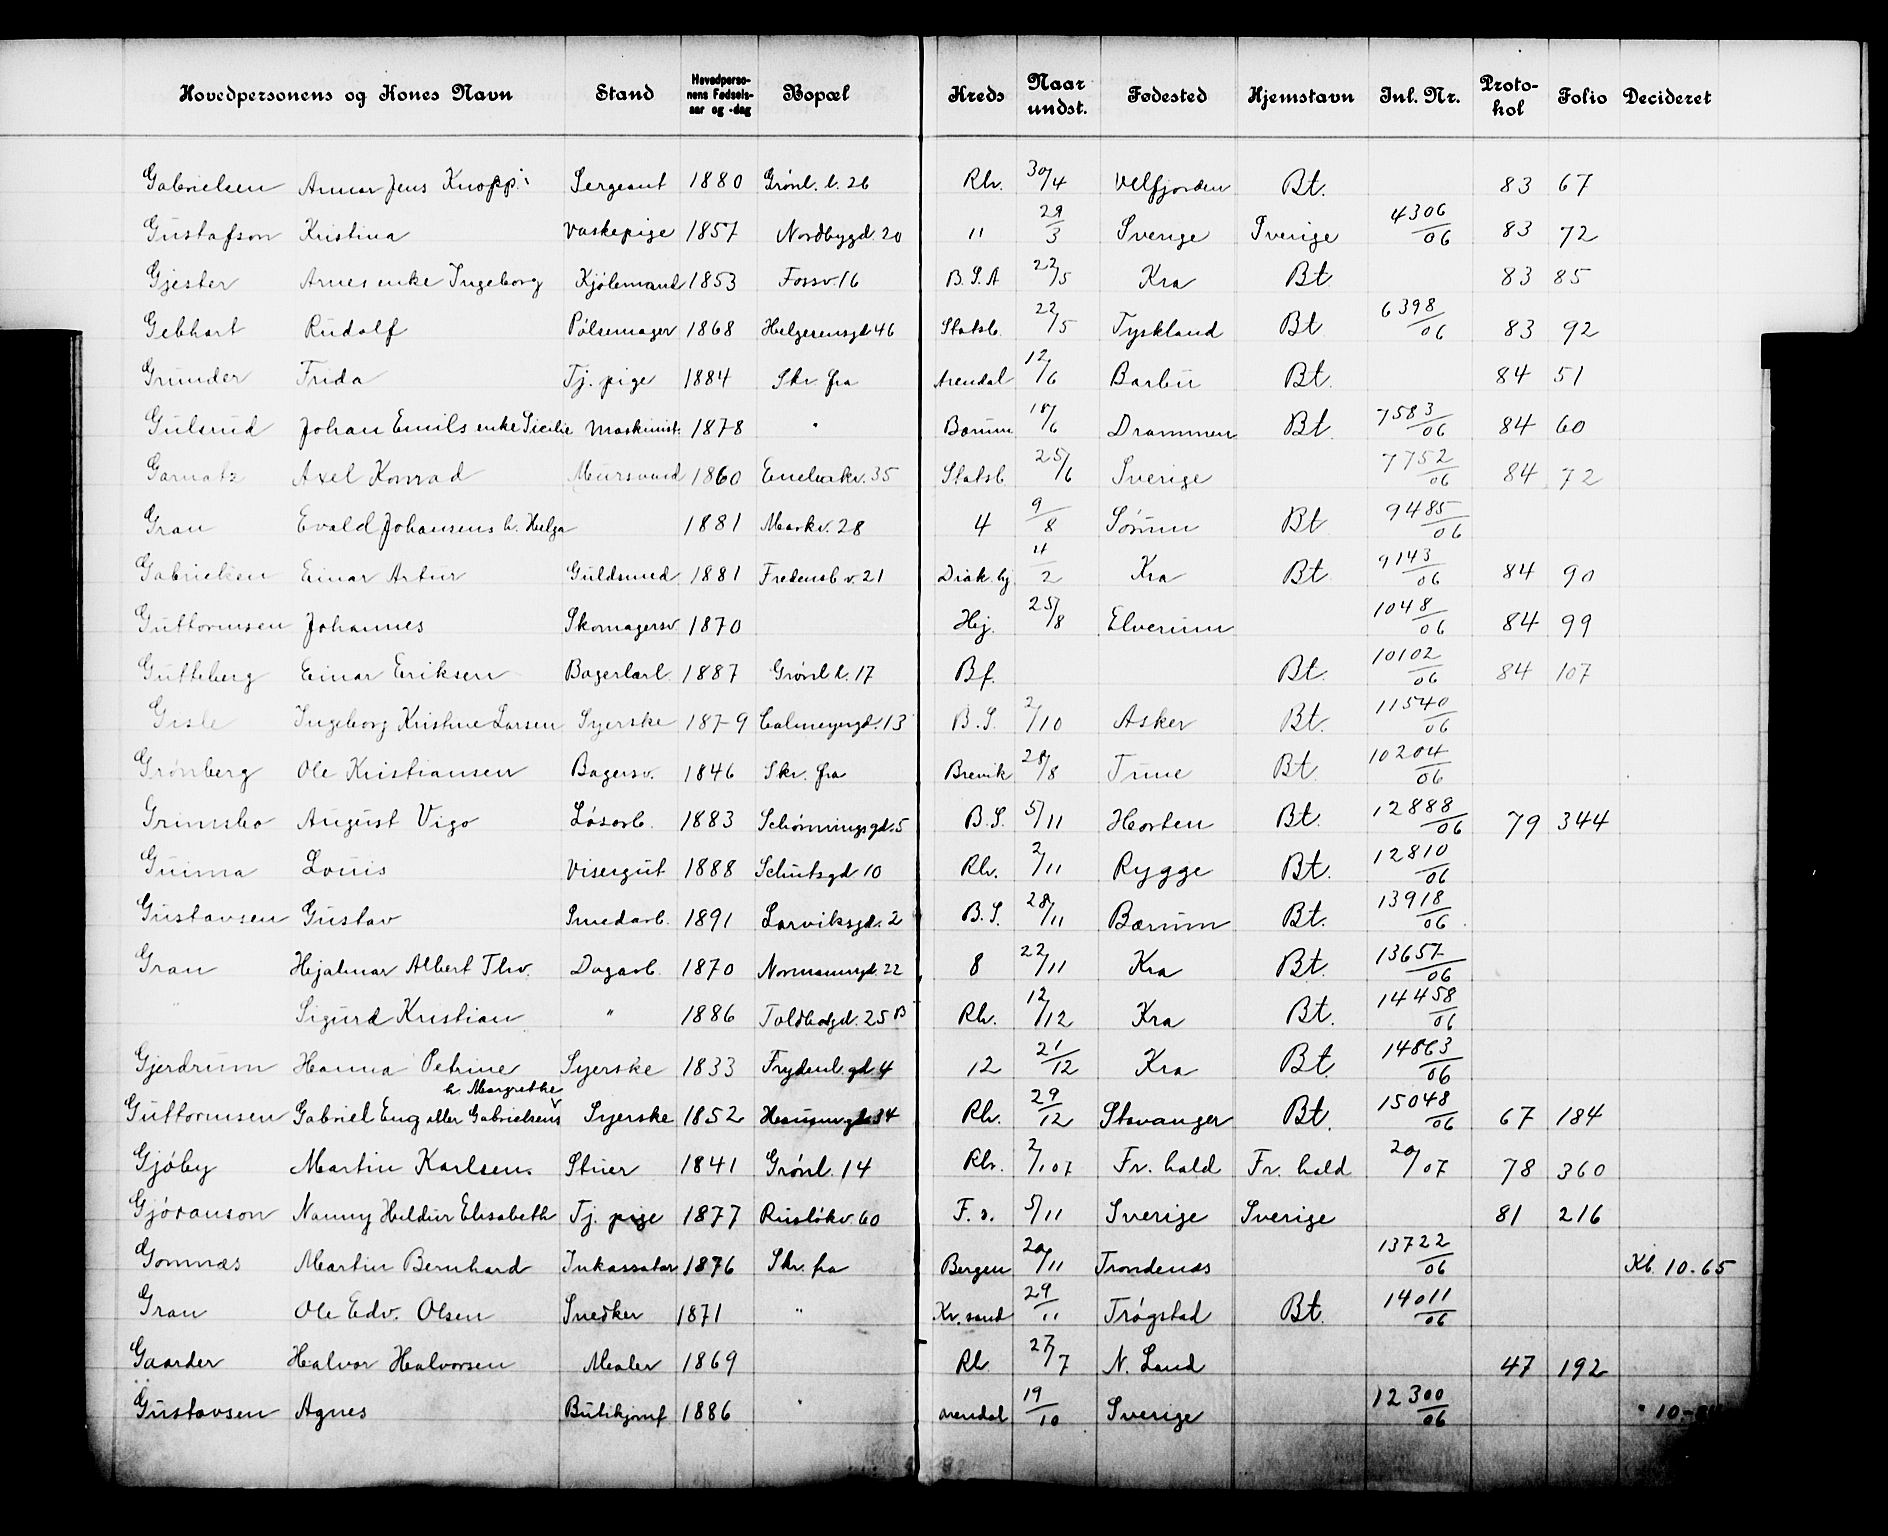 Hovedpersonens og Kones Navn Stand Hovedpersonens Fødselsaar og -dag Bopæl Kreds Naar undst. Fødested Hjemstavn Inl. Nr. Protokol Folio Decideret
Gabrielsen Annar Jens Knopp Sergeant 1880 Grønl. l. 26 Rh. 30/4 Velfjorden Bt. 83 67
Gustafson Kristina Vaskepige 1857 Nordbygd. 20 " 29/3 Sverige Sverige 4306/06 83 72
Gjester Arnes enke Ingeborg Kjøbmand 1853 Fossv. 16 B. S. A 22/5 Kra Bt 83 85
Gebhart Rudolf Pølsemager 1868 Helgesensgd 46 Statsb. 22/5 Tyskland Bt 6398/06 83 92
Grunder Frida Tj. pige 1884 Skr. fra Arendal 12/6 Barbu Bt. 84 51
Gulsrud Johan Emils enke Sicilie Maskinist. 1878 " Bærum 18/6 Drammen Bt. 7583/06 84 60
Garnatz Axel Konrad Mursvend 1860 Enebakv. 35 Statsb. 25/6 Sverige 7752/06 84 72
Gran Evald Johansens h. Helga 1881 Markv. 28 4 9/8 Sørum Bt 9485/06
Gabrielsen Einar Artur Guldsmed 1881 Fredensb v. 21 Diak. hj 11/2 Kra Bt 9143/06 84 90
Guttormsen Johannes Skomagersv. 1870 Hej. 25/8 Elverum 1048/06 84 99
Gutteberg Einar Eriksen Bagerlærl. 1887 Grønl l. 17 Bf. Bt. 10102/06 84 107
Gisle Ingeborg Kristine Larsen Syerske 1879 Calmeyergd. 13 B. S. 2/10 Asker Bt. 11540/06
Grønberg Ole Kristiansen Bagersv. 1846 Skr. fra Brevik 28/8 Tune Bt. 10204/06
Grimsbo August Vigo Løsarb. 1883 Schønningsgd. 5 B. S. 5/11 Horten Bt. 12888/06 79 344
Guima Louis Visergut 1888 Schutsgd 10 Rh. 2/11 Rygge Bt. 12810/06
Gustavsen Gustav Smedarb. 1891 Larviksgd. 2 B. S. 28/11 Bærum Bt. 13918/06
Gran Hjalmar Albert Thv. Dagarb. 1870 Normannsgd. 22 8 22/11 Kra Bt. 13657/06
" Sigurd Kristian " 1886 Toldbodgd. 25 B Rh. 12/12 Kra Bt. 14458/06
Gjerdrum Hanna Petrine Syerske 1833 Frydenl. gd. 4 12 21/12 Kra Bt. 14863/06
h. Margrethe
Guttormsen Gabriel Eng eller Gabrielsens Syerske 1852 Hausmgd 34 Rh. 29/12 Stavanger Bt. 15048/06 67 184
Gjøby Martin Karlsen. Stuer 1841 Grønl. 14 Rh. 2/1 07 Fr. hald Fr. hald 20/07 78 360
Gjøranson Nanny Hildur Elisabeth Tj. pige 1877 Rusløkv. 60 F. s. 5/11 Sverige Sverige 81 216
Gomnæs Martin Bernhard Inkassator 1876 Skr. fra Bergen 20/11 Trondenæs 13722/06 Kl. 10-65
Gran Ole Edv. Olsen Snedker 1871 " Kr. sand 29/11 Trøgstad Bt. 14011/06
Gaarder Halvor Halvorsen Maler 1869 Rh 27/7 N. Land 47 192
Gustavsen Agnes Butikjomf 1886 " Arendal 19/10 Sverige 12300/06 " 10-